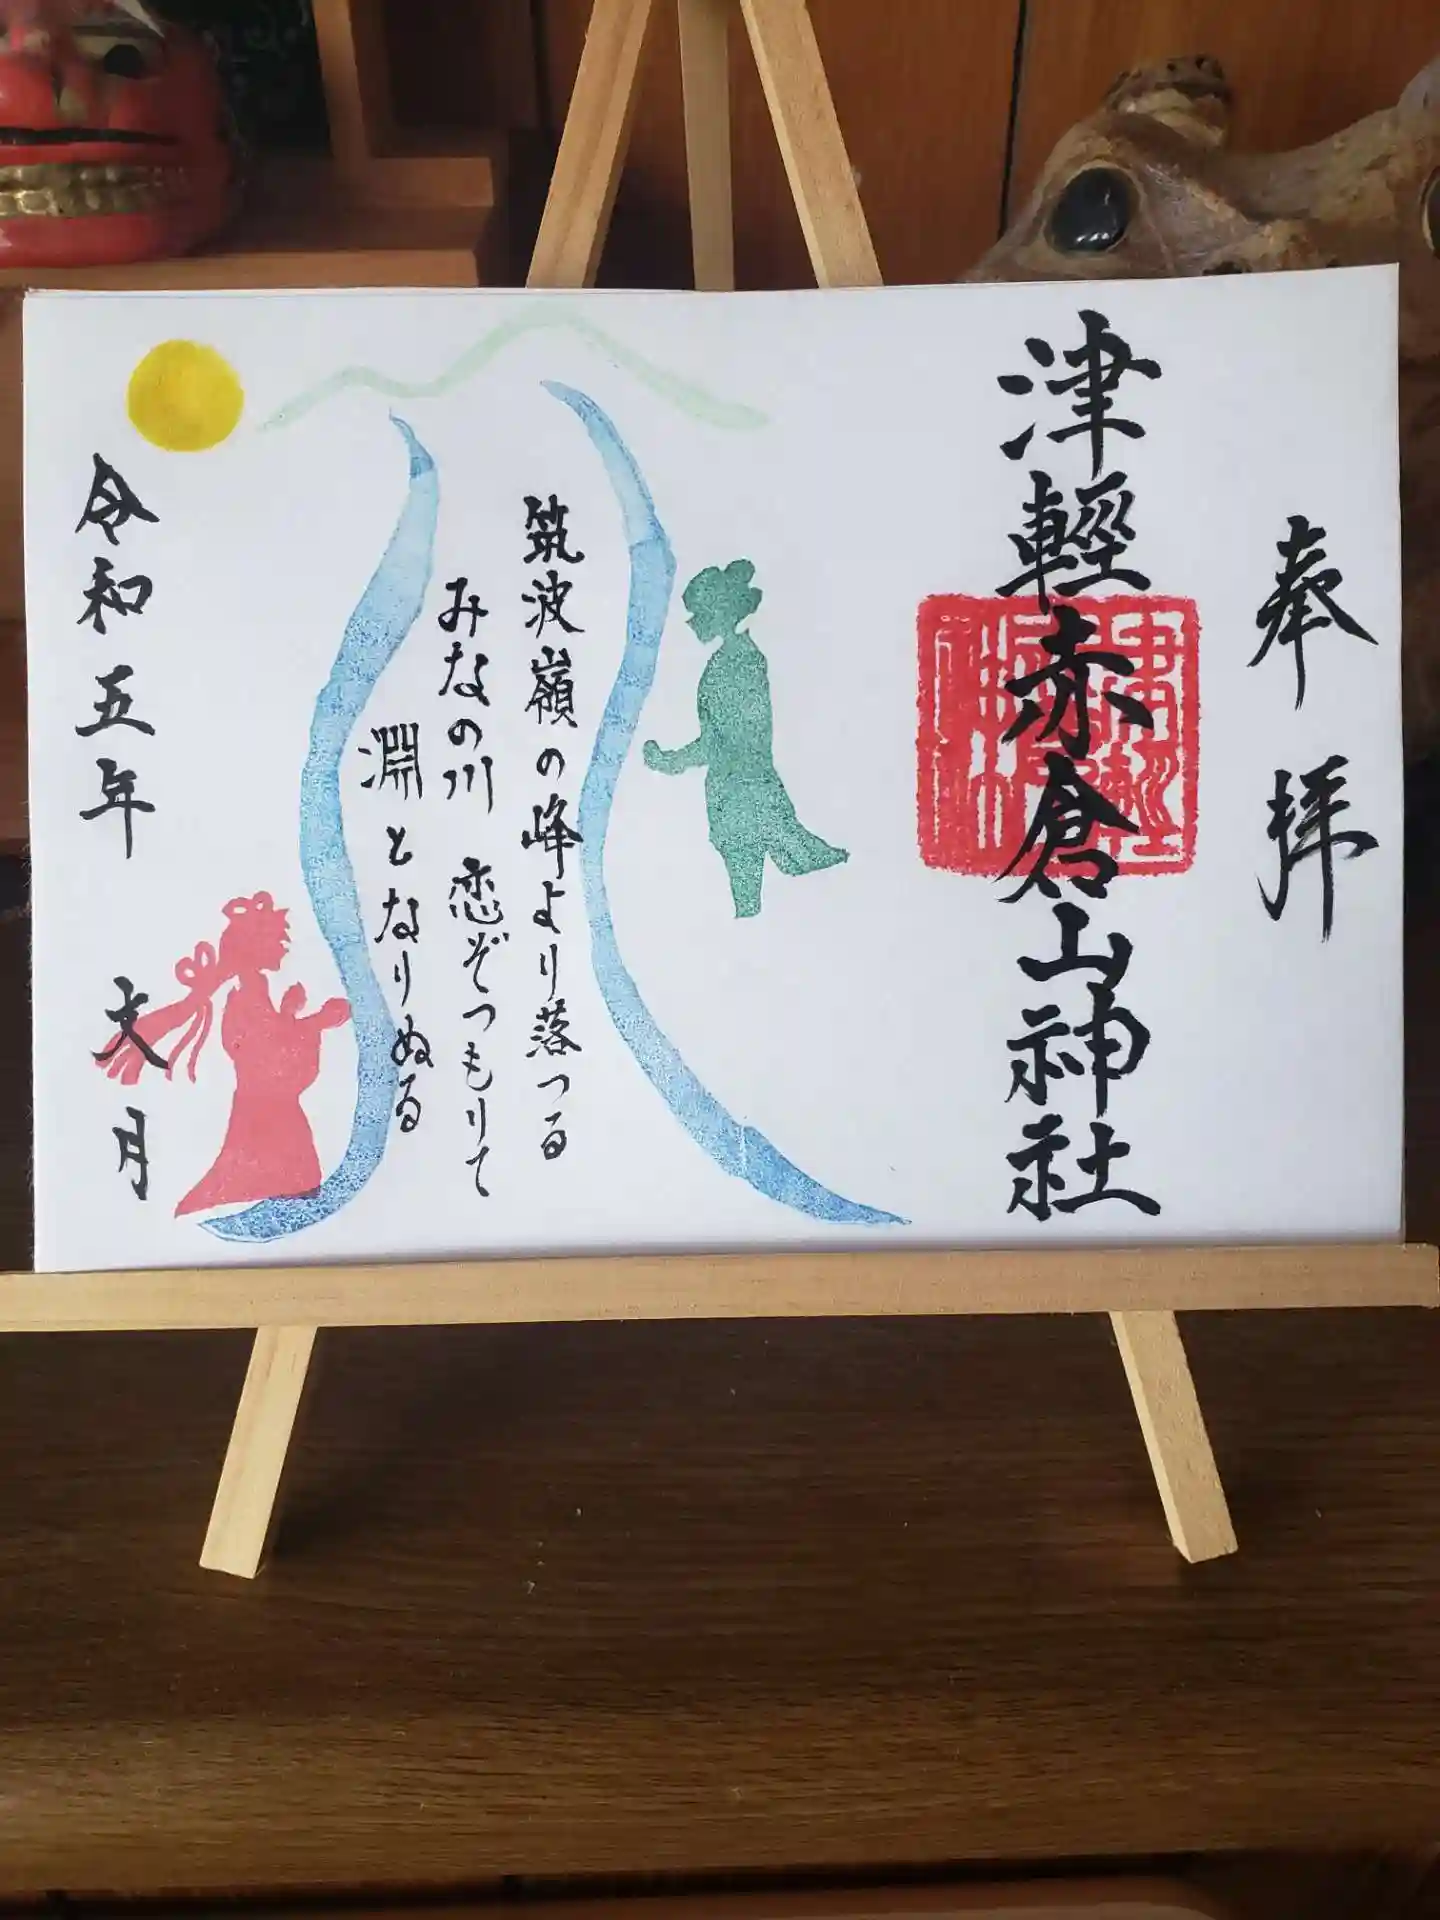 奉拝
津輕赤倉山神社
筑波嶺の峰より落つる
みなの川 恋ぞつもりて
淵となりぬる
令和五年 文月